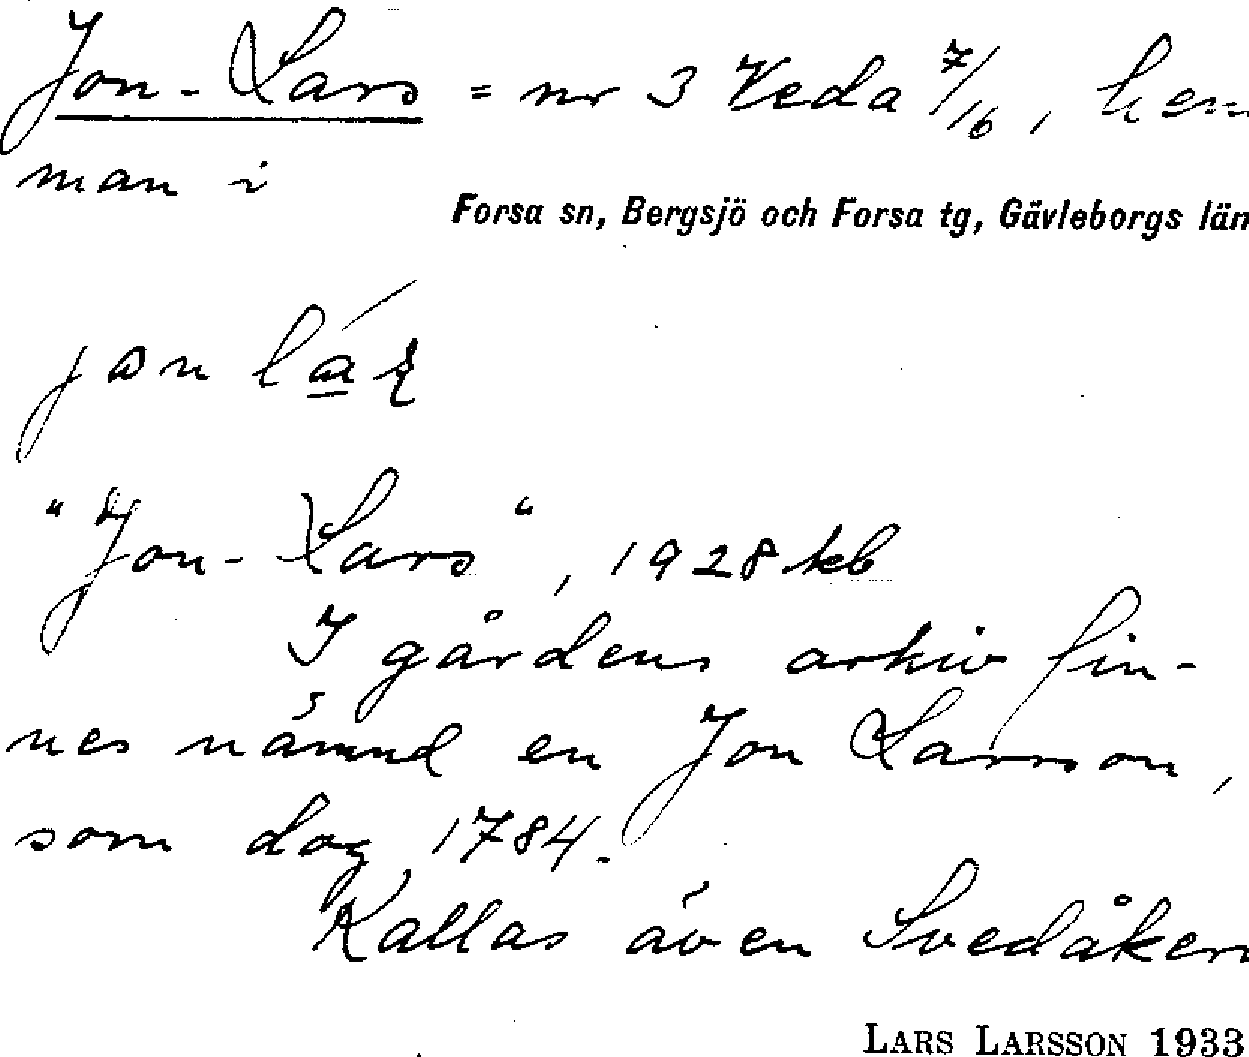 Jon-Lars = nr 3 Veda 7/16, hem
man i
Forsa sn, Bergsjö och Forsa tg, Gävleborgs län
"Jon-Lars", 1928 kb
I gårdens arkiv fin-
nes nämnd en Jon Larsson,
som dog 1784.
Kallas även Svedåkern
LARS LARSSON 1933